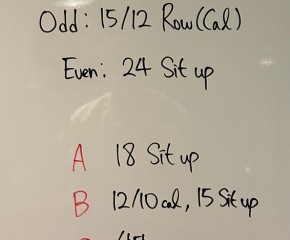 Odd: 15/12 Row(Cal)
Even: 24 Sit up
A 18 Sit up
B 12/10 cal, 15 Sit up